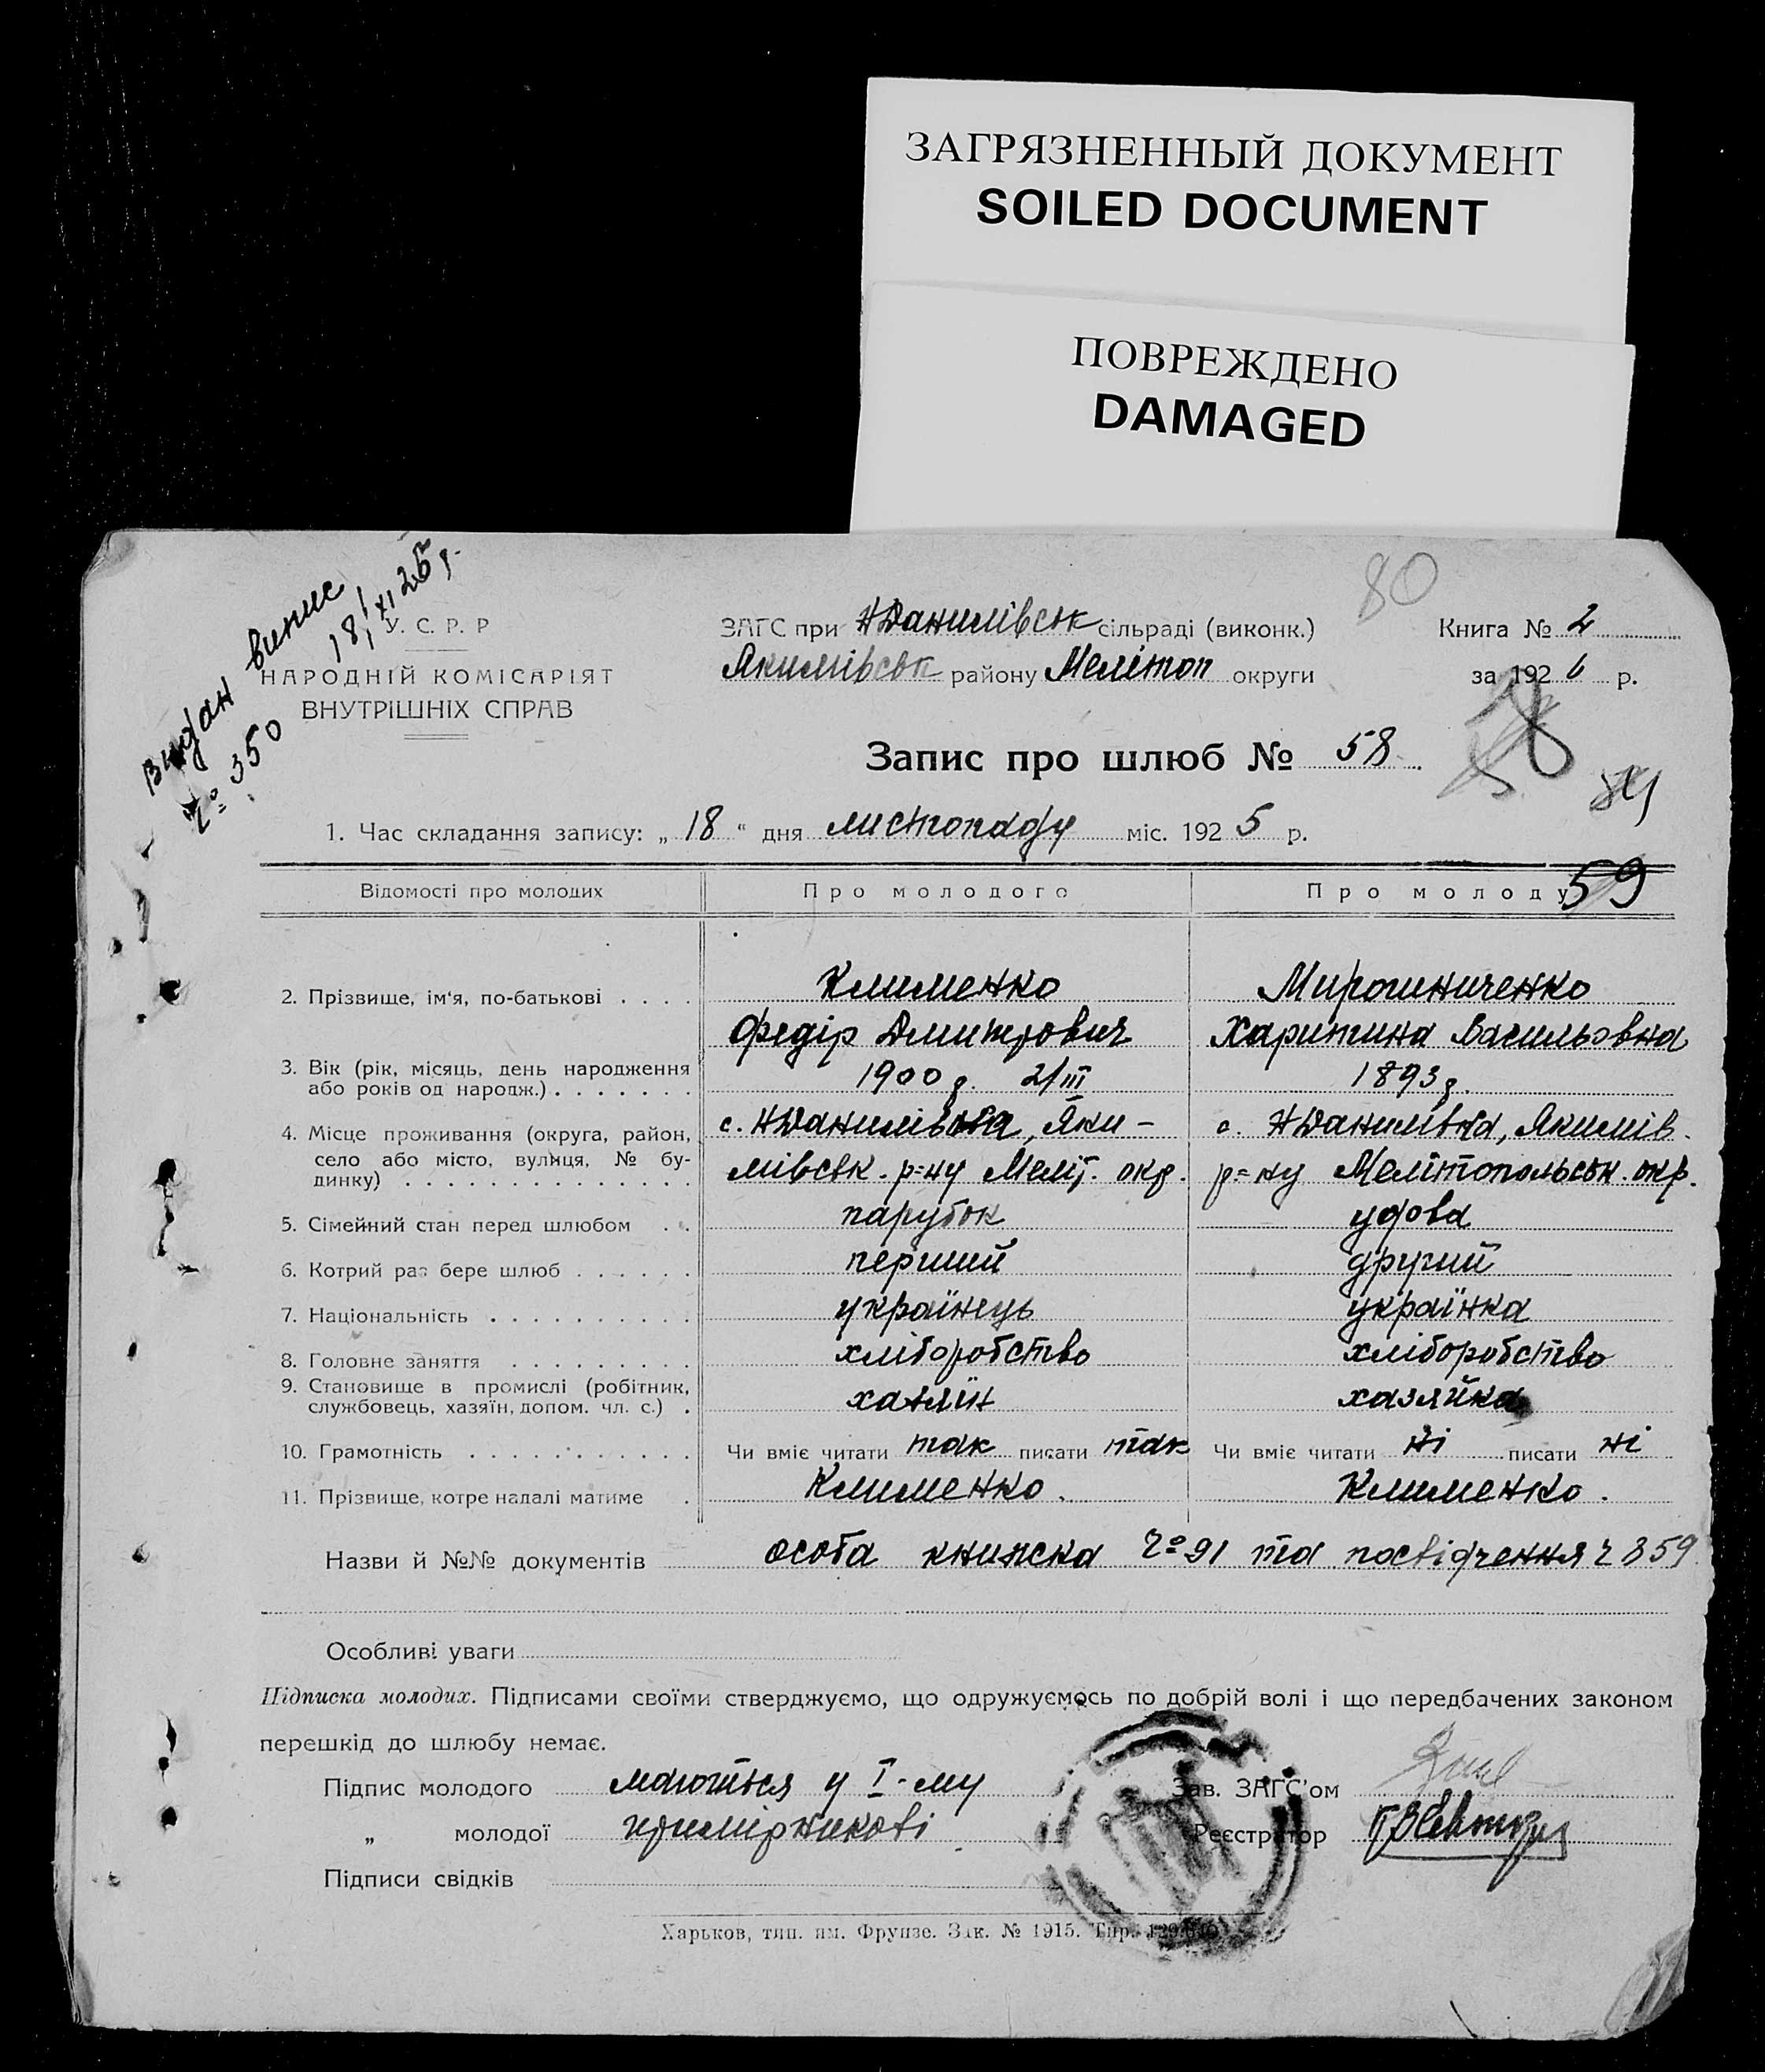 ЗАГРЯЗНЕННЫЙ ДОКУМЕНТ
SOILED DOCUMENT
ПОВРЕЖДЕНО
DAMAGED
Видан випис
№ 350 18/XI 25 р.
80
У. С. Р. Р
НАРОДНІЙ КОМІСАРІЯТ
ВНУТРІШНІХ СПРАВ
ЗАГС при НДанилівськ сільраді (виконк.)
Якимівськ району Мелітоп округи
Книга № 2
за 1926 р.
Запис про шлюб № 58
1. Час складання запису: „ 18 “ дня листопаду міс. 1925 р.
59
Відомості про молодих Про молодого Про молоду
2. Прізвище, ім‘я, по-батькові . . . . Клименко Мирошниченко
Федір Дмитрович Харитина Васильовна
3. Вік (рік, місяць, день народження
або років од народж.) . . . . . . . 1900 р. 2/III 1893 р.
4. Місце проживання (округа, район, с. НДанилівка, Яки- с. НДанилівка, Якимів.
село або місто, вулиця, № бу-
динку) . . . . . . . . . . . . . . мівськ. р=ну Меліт. окр. р=ну Мелітопольськ. окр.
5. Сімейний стан перед шлюбом . . парубок удова
6. Котрий раз бере шлюб . . . . . . перший другий
7. Національність . . . . . . . . . . українець українка
8. Головне заняття . . . . . . . . . хліборобство хліборобство
9. Становище в промислі (робітник,
службовець, хазяїн, допом. чл. с.) . хазяїн хазяйка
10. Грамотність . . . . . . . . . . . Чи вміє читати так писати так Чи вміє читати ні писати ні
11. Прізвище, котре надалі матиме . Клименко. Клименко.
Назви й №№ документів особа книжка Ч⁰ 91 та посвідчення ч 359
Особливі уваги
Підписка молодих. Підписами своїми стверджуємо, що одружуємось по добрій волі і що передбачених законом
перешкід до шлюбу немає.
Підпис молодого маються у I-му
„ молодої примірникові
Підписи свідків
Зав. ЗАГС‘ом
Реєстратор
Харьков, тип. им. Фрунзе. Зак. № 1915. Тир.